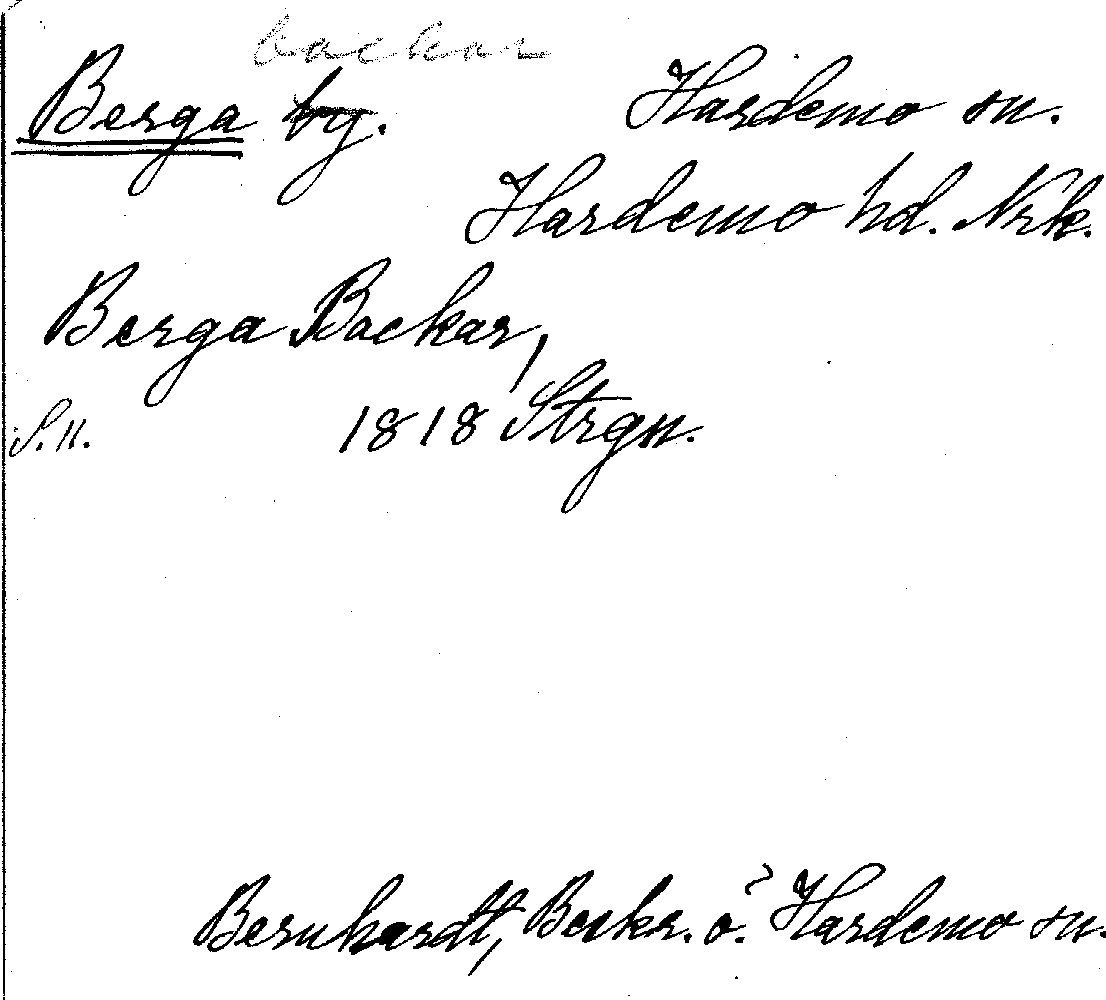 backar
Berga by. Hardemo sn.
Hardemo hd. Nrk.
Berga Backar,
S.n. 1818 Strgn.
Bernhardt, Beskr. ö. Hardemo sn.